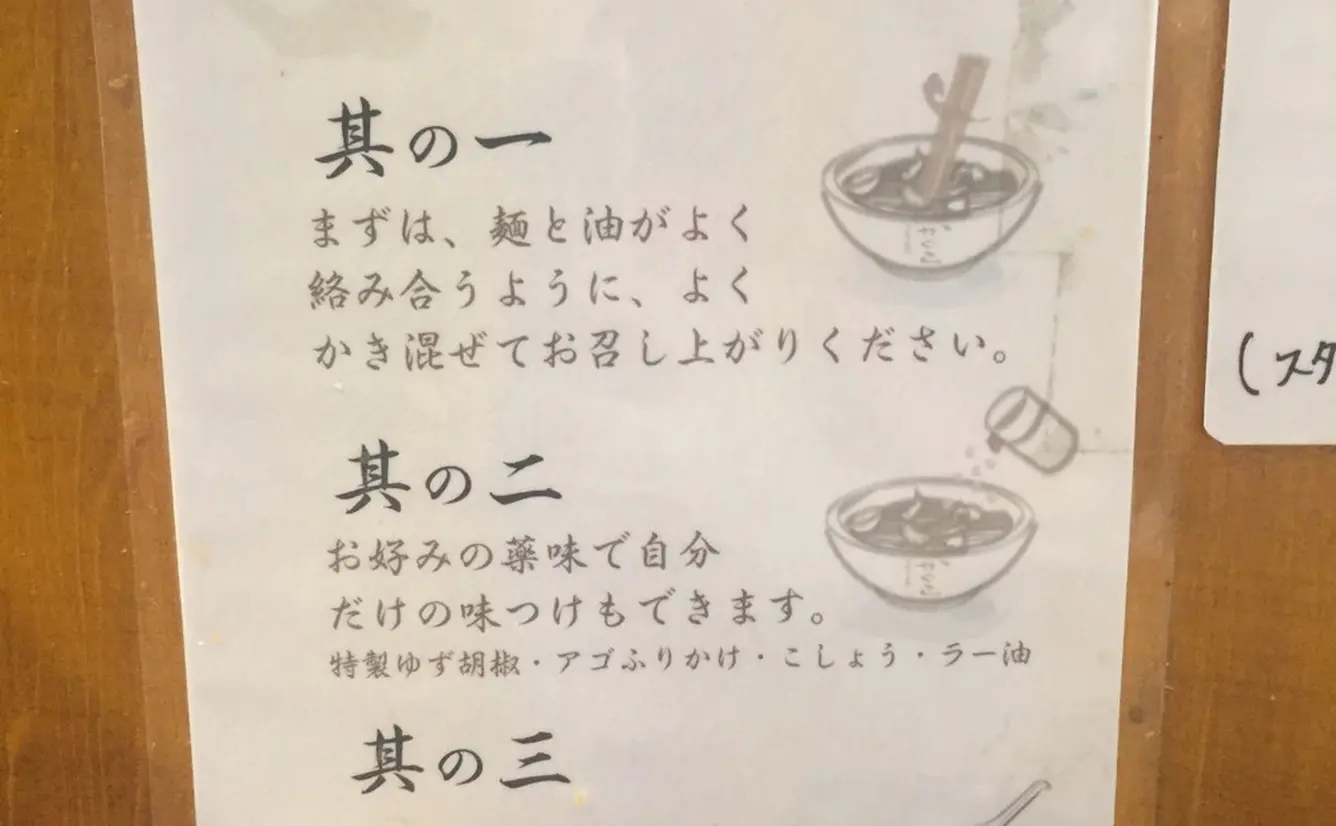 其の一
まずは、麺と油がよく
絡み合うように、よく
かき混ぜてお召し上がりください。
其の二
お好みの薬味で自分
だけの味つけもできます。
特製ゆず胡椒・アゴふりかけ・こしょう・ラー油
其の三
(スタ